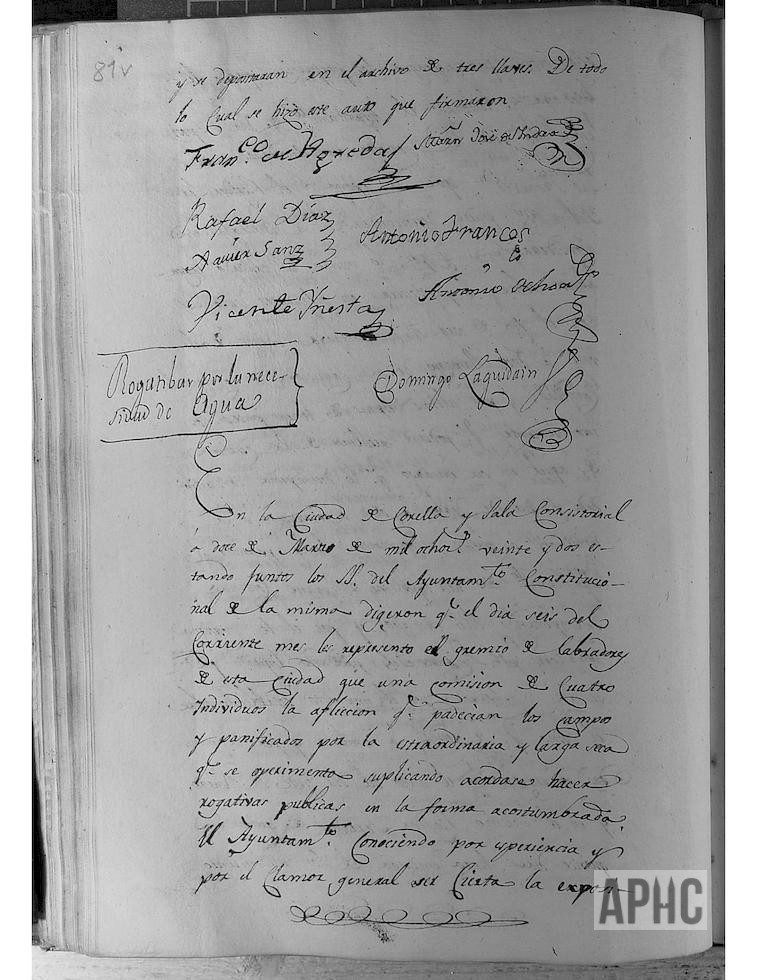 81v
y se depositaran en el archivo de tres llaves. De todo
lo Cual se hizo este auto que firmaron
Fran.co de Agreda
Rafael Díaz
Xavier Sanz
Antonio Frances
Vicente Yñesta
Antonio Ochoa
Rogatibas por la nece-
sidad de Agua
Domingo Laquidain
En la Ciudad de Corella y Sala Consistorial
á doce de Marzo de mil ocho.s veinte y dos es-
tando juntos los SS. del Ayuntam.to Constitucio-
nal de la misma digeron q.e el dia seis del
Corriente mes les represento el gremio de labradores
de esta Ciudad que una comision de Cuatro
Individuos la afliccion q.e padecian los campos
y panificados por la estraordinaria y larga seca
q.e se esperimenta suplicando acordase hacer
rogativas publicas en la forma acostumbrada.
El Ayuntam.to Conociendo por esperiencia y
por el Clamor general ser Cierta la exposi-
APHC